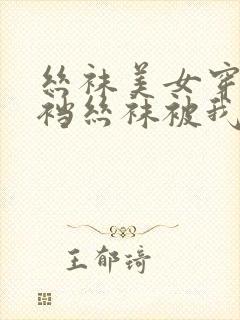 丝袜美女穿
裆丝袜被我
王郁琦